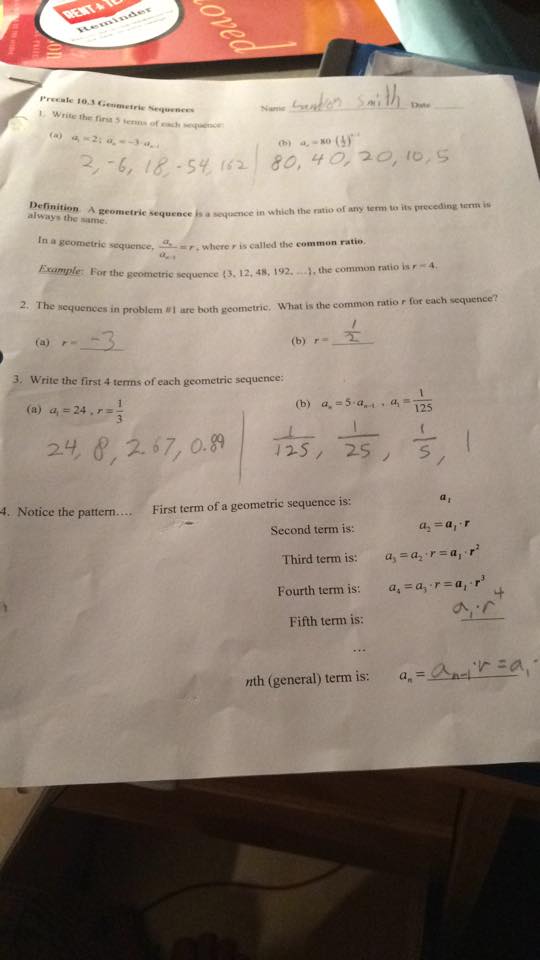 RENT & TE
Reminder
oved
Precalc 10.3 Geometric Sequences Name Smith Date
1. Write the first 5 terms of each sequence:
(a) a₁ = 2; aₙ = -3·aₙ₋₁ (b) aₙ = 80 (1/2)ⁿ⁻¹
2, -6, 18, -54, 162 | 80, 40, 20, 10, 5
Definition. A geometric sequence is a sequence in which the ratio of any term to its preceding term is
always the same.
In a geometric sequence, aₙ/aₙ₋₁ = r, where r is called the common ratio.
Example: For the geometric sequence {3, 12, 48, 192, ...}, the common ratio is r = 4.
2. The sequences in problem #1 are both geometric. What is the common ratio r for each sequence?
(a) r = -3 (b) r = 1/2
3. Write the first 4 terms of each geometric sequence:
(a) a₁ = 24, r = 1/3 (b) aₙ = 5·aₙ₋₁, a₁ = 1/125
24, 8, 2.67, 0.89 | 1/125, 1/25, 1/5, 1
4. Notice the pattern.... First term of a geometric sequence is: a₁
Second term is: a₂ = a₁·r
Third term is: a₃ = a₂·r = a₁·r²
Fourth term is: a₄ = a₃·r = a₁·r³
Fifth term is: a₁·r⁴
...
nth (general) term is: aₙ = aₙ₋₁·r = a₁·